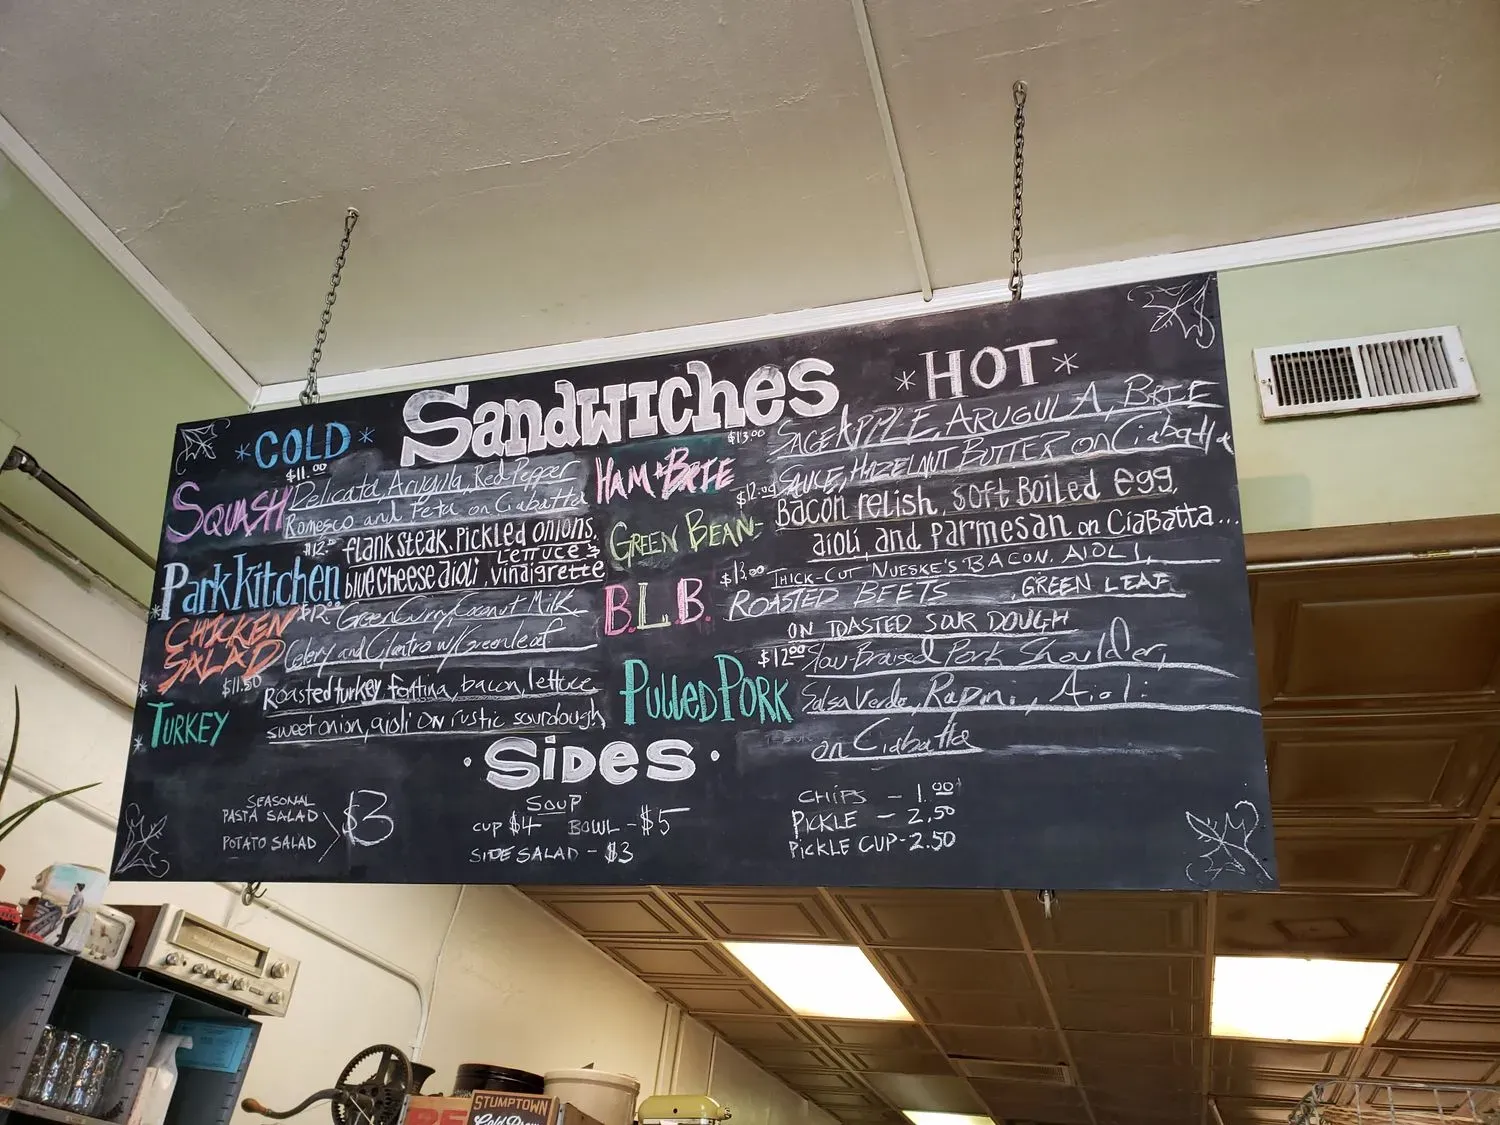 Sandwiches
*COLD*
SQUASH
$11.00
Delicata, Arugula, Red Pepper
Romesco and Feta on Ciabatta
Park Kitchen
flank steak, Pickled onions,
Lettuce &
blue cheese aioli, vinaigrette
CHICKEN
SALAD
$12.00
Green Curry, Coconut Milk,
Celery and Cilantro w/ greenleaf
TURKEY
$11.50
Roasted turkey, fontina, bacon, lettuce
sweet onion, aioli ON rustic sourdough
*HOT*
HAM & BRIE
$13.00
SAGE APPLE, ARUGULA, BRIE
SAUCE, HAZELNUT BUTTER on Ciabatta
GREEN BEAN-
Bacon relish, soft Boiled egg,
aioli, and parmesan on CiaBatta...
B.L.B.
$13.00
THICK-CUT NUESKE'S BACON, AIOLI,
ROASTED BEETS, GREEN LEAF
ON TOASTED SOUR DOUGH
PULLED PORK
$12.00
Slow-Braised Pork Shoulder,
Salsa Verde, Rapini, Aioli
on Ciabatta
· SIDES ·
SEASONAL
PASTA SALAD
POTATO SALAD
$3
SOUP
CUP $4 BOWL - $5
SIDE SALAD - $3
CHIPS - 1.00
PICKLE - 2.50
PICKLE CUP - 2.50
STUMPTOWN